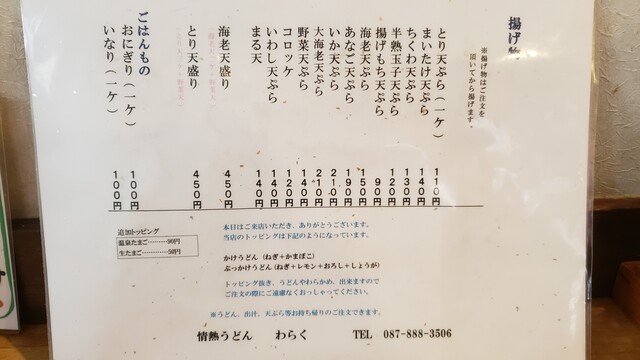 揚げ物
※揚げ物はご注文を
頂いてから揚げます。
とり天ぷら（一ケ） 110円
まいたけ天ぷら 140円
ちくわ天ぷら 130円
半熟玉子天ぷら 120円
揚げもち天ぷら 90円
海老天ぷら 150円
あなご天ぷら 190円
いか天ぷら
大海老天ぷら 210円
野菜天ぷら 140円
コロッケ 120円
いわし天ぷら 140円
まる天 140円
海老天盛り 450円
とり天盛り 450円
ごはんもの
おにぎり（一ケ） 100円
いなり（一ケ） 100円
追加トッピング
温泉たまご………90円
生たまご…………50円
本日はご来店いただき、ありがとうございます。
当店のトッピングは下記のようになっています。
かけうどん（ねぎ＋かまぼこ）
ぶっかけうどん（ねぎ＋レモン＋おろし＋しょうが）
トッピング抜き、うどんやわらかめ、出来ますので
ご注文の際にご遠慮なくおっしゃってください。
※うどん、出汁、天ぷら等お持ち帰りのご注文できます。
情熱うどん わらく TEL 087-888-3506